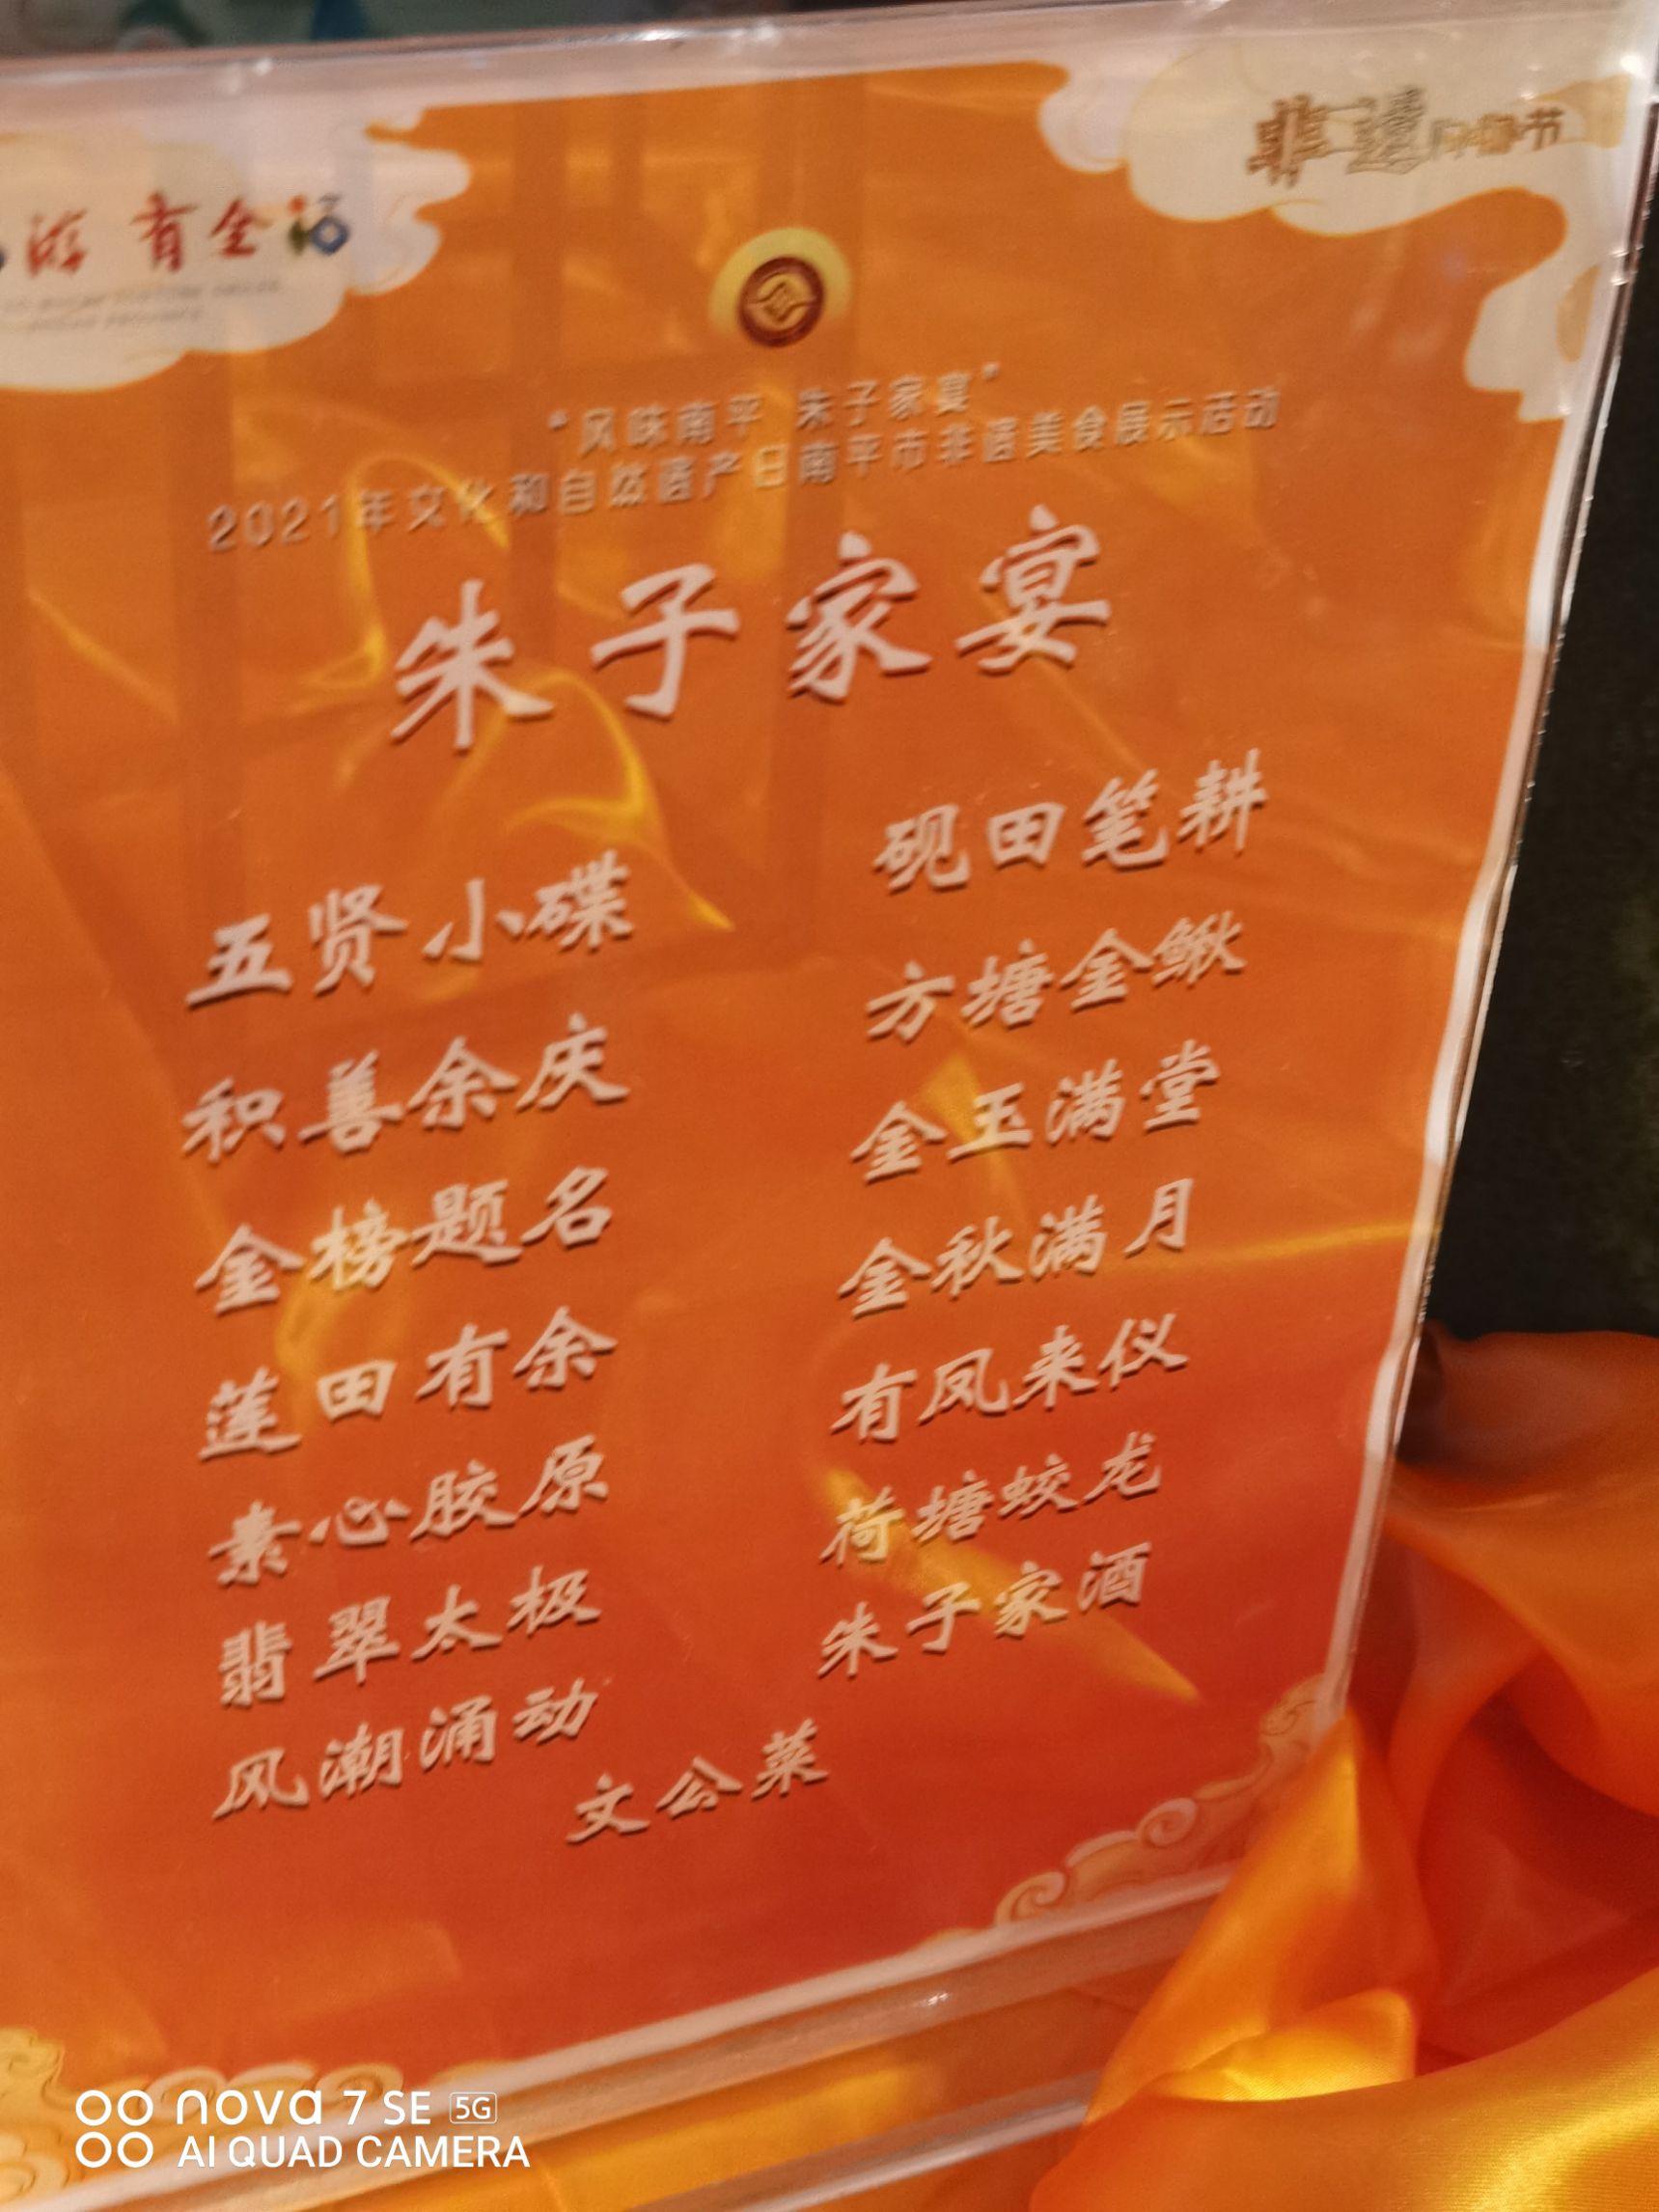 游 有全福
非遗
"风味南平 朱子家宴"
2021年文化和自然遗产日南平市非遗美食展示活动
朱子家宴
五贤小碟
积善余庆
金榜题名
莲田有余
素心胶原
翡翠太极
风潮涌动
砚田笔耕
方塘金鳅
金玉满堂
金秋满月
有凤来仪
荷塘蛟龙
朱子家酒
文公菜
nova 7 SE 5G
AI QUAD CAMERA